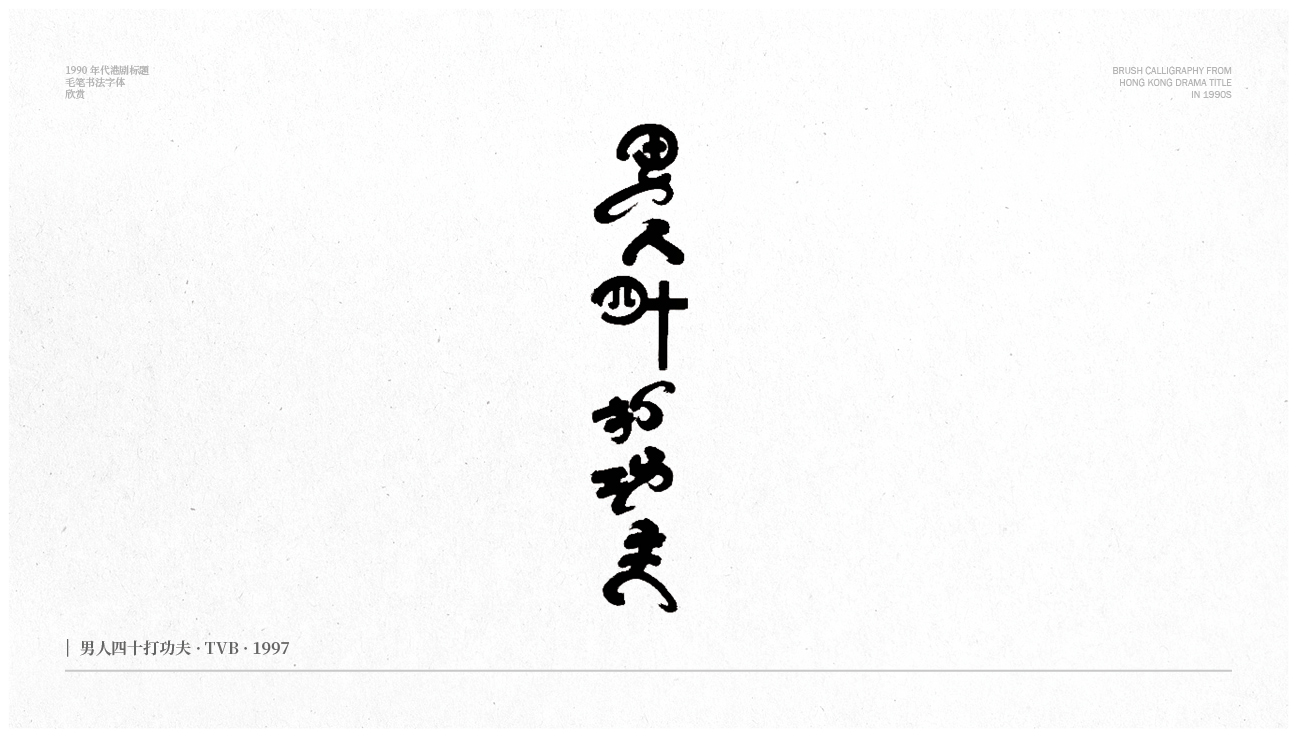 1990 年代港剧标题
毛笔书法字体
欣赏
BRUSH CALLIGRAPHY FROM
HONG KONG DRAMA TITLE
IN 1990S
男人四十打功夫
男人四十打功夫 · TVB · 1997